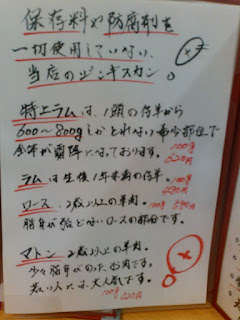 保存料や防腐剤を
一切使用していない、
当店のジンギスカン。
特上ラムは、1頭の仔羊から
600〜800gしかとれない希少部位で
今年が最降になっております。
100g
620円
ラムは生後1年未満の仔羊。
100g
ロース、2歳以上の羊肉。100g
脂身が殆どないロースの部分です。
マトン、2歳以上の羊肉。
少々脂身がのったお肉です。
若い人には、大人気です。
100g